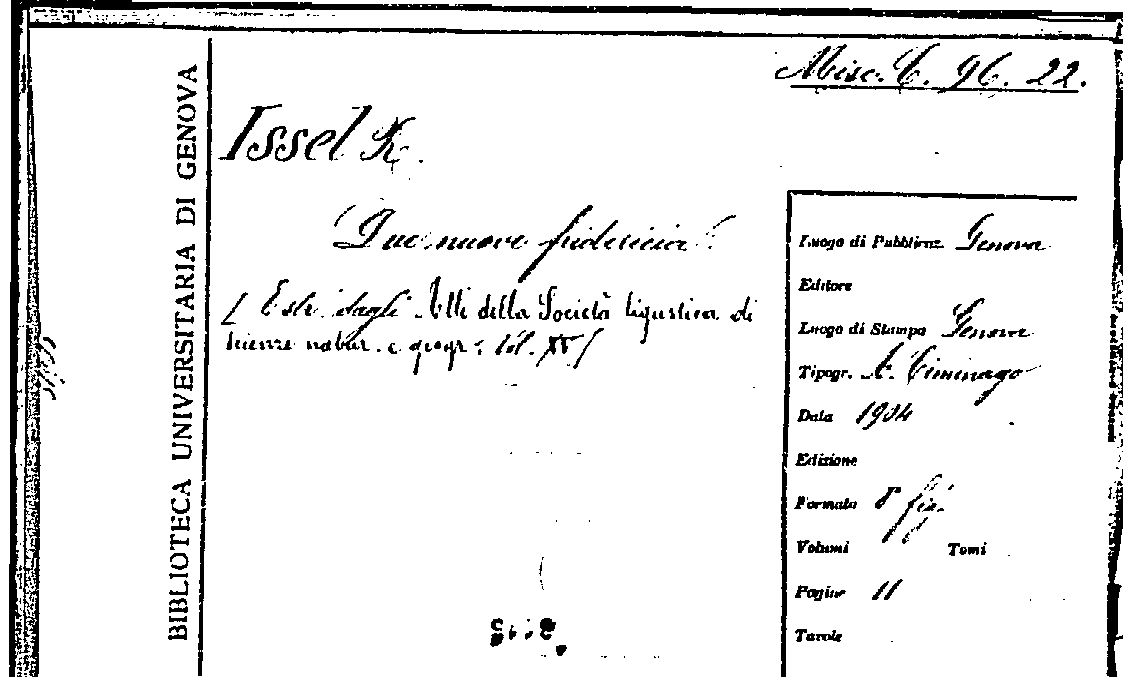 Misc. C. 96. 22.
BIBLIOTECA UNIVERSITARIA DI GENOVA
Issel R.
Due nuove fridericia
[Estr. dagli Atti della Società ligustica di
scienze natur. e geogr. Vol. XV]
Luogo di Pubblicaz. Genova
Editore
Luogo di Stampa Genova
Tipogr. A. Ciminago
Data 1904
Edizione
Formato 8° fig.
Volumi Tomi
Pagine 11
Tavole